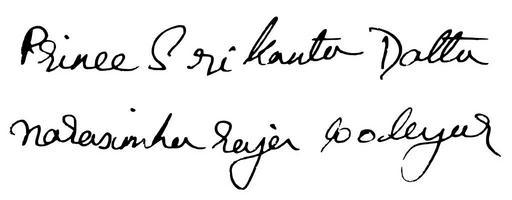 Prince Srikanta Datta
Narasimha Rajer Wodeyar